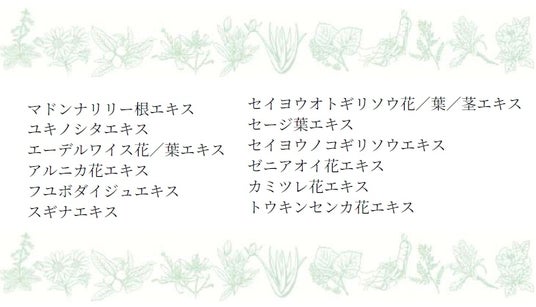 マドンナリリー根エキス
ユキノシタエキス
エーデルワイス花／葉エキス
アルニカ花エキス
フユボダイジュエキス
スギナエキス
セイヨウオトギリソウ花／葉／茎エキス
セージ葉エキス
セイヨウノコギリソウエキス
ゼニアオイ花エキス
カミツレ花エキス
トウキンセンカ花エキス